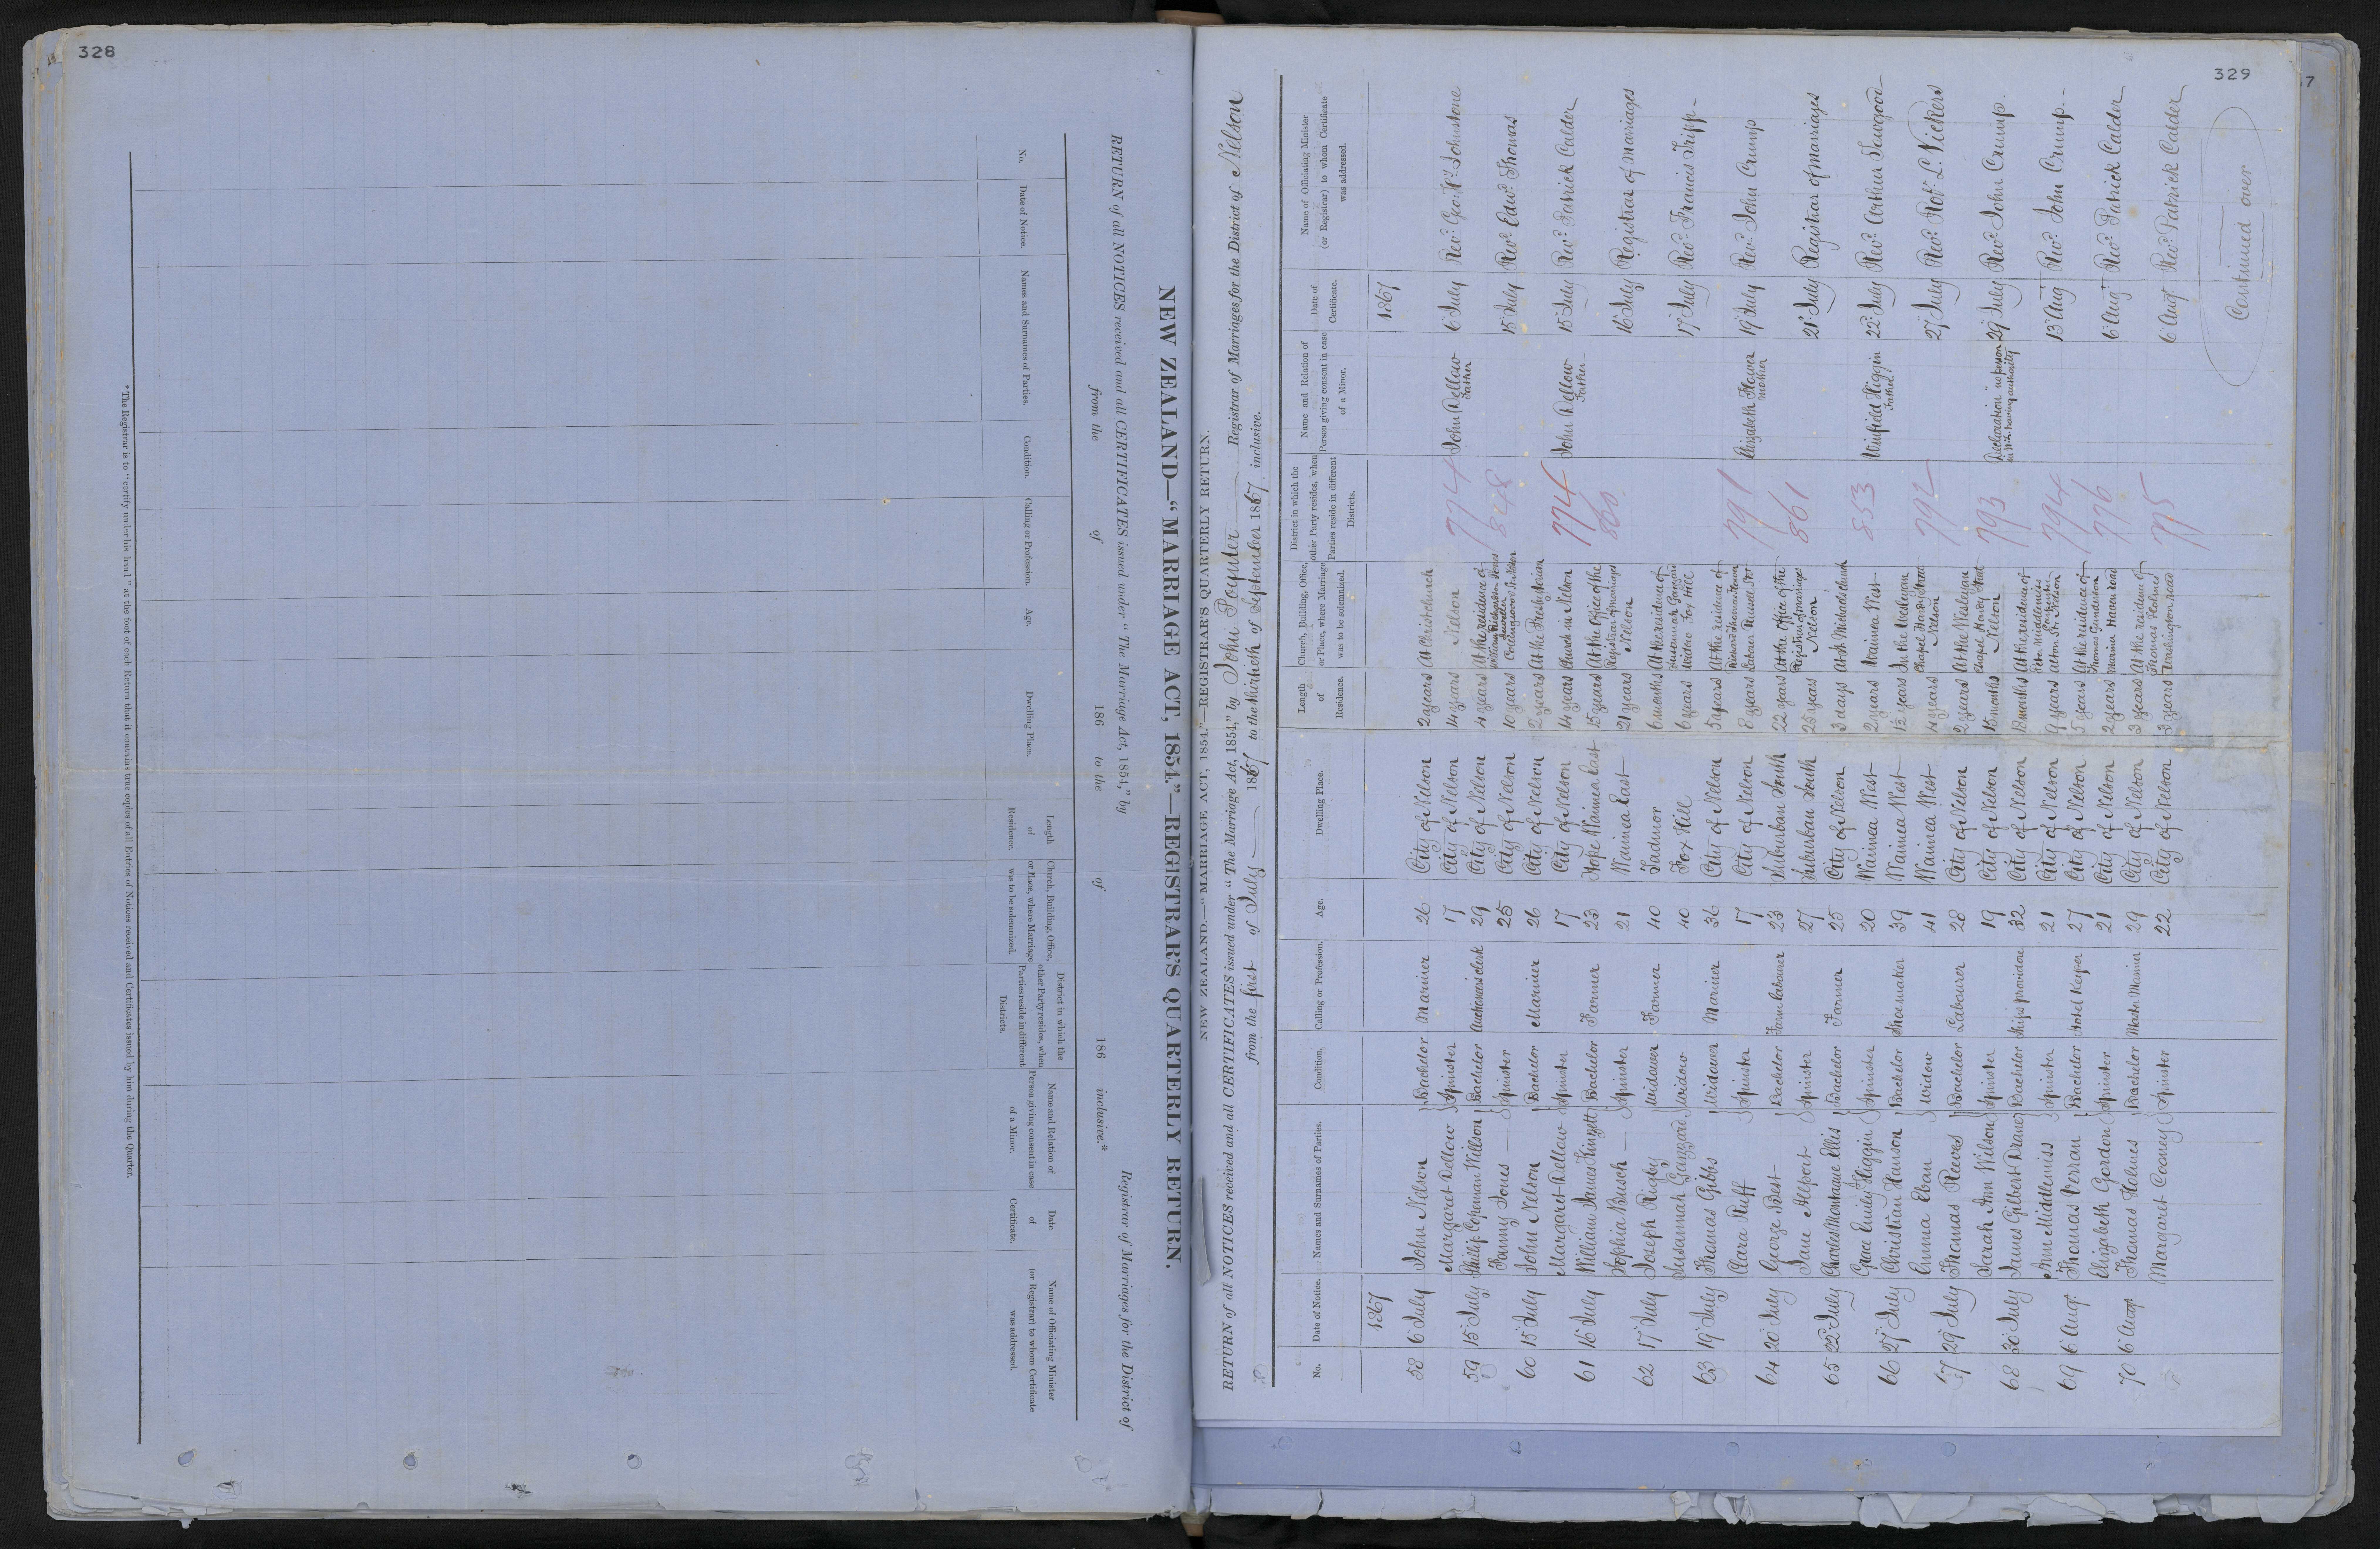 328
NEW ZEALAND—"MARRIAGE ACT, 1854."—REGISTRAR'S QUARTERLY RETURN.
RETURN of all NOTICES received and all CERTIFICATES issued under "The Marriage Act, 1854," by Registrar of Marriages for the District of
from the of 186 to the of 186 inclusive.*
No. Date of Notice. Names and Surnames of Parties. Condition. Calling or Profession. Age. Dwelling Place. Length of Residence. Church, Building, Office, or Place, where Marriage was to be solemnized. District in which the other Party resides, when Parties reside in different Districts. Name and Relation of Person giving consent in case of a Minor. Date of Certificate. Name of Officiating Minister (or Registrar) to whom Certificate was addressed.
*The Registrar is to "certify under his hand" at the foot of each Return that it contains true copies of all Entries of Notices received and Certificates issued by him during the Quarter.
329
NEW ZEALAND.—"MARRIAGE ACT, 1854."—REGISTRAR'S QUARTERLY RETURN.
RETURN of all NOTICES received and all CERTIFICATES issued under "The Marriage Act, 1854," by John Poynter Registrar of Marriages for the District of Nelson
from the first of July 1867 to the thirtieth of September 1867 inclusive.
No. Date of Notice. Names and Surnames of Parties. Condition. Calling or Profession. Age. Dwelling Place. Length of Residence. Church, Building, Office, or Place, where Marriage was to be solemnized. District in which the other Party resides, when Parties reside in different Districts. Name and Relation of Person giving consent in case of a Minor. Date of Certificate. Name of Officiating Minister (or Registrar) to whom Certificate was addressed.
1867 1867
58 6 July John Nelson Bachelor Mariner 26 City of Nelson 2 years At Christchurch
Margaret Dellow Spinster 17 City of Nelson 14 years Nelson 774 John Dellow Father 6 July Revd. Geo. Hy. Johnstone
59 15 July Phillip Copeman Willson Bachelor Auctioneers clerk 29 City of Nelson 4 years At the residence of William Richardson Jones
Fanny Jones Spinster 25 City of Nelson 10 years Collingwood St. Nelson 848 15 July Revd. Edwd. Thomas
60 15 July John Nelson Bachelor Mariner 26 City of Nelson 2 years At the Presbyterian
Margaret Dellow Spinster 17 City of Nelson 14 years Church in Nelson 774 John Dellow Father 15 July Revd. Patrick Calder
61 16 July William James Kinzett Bachelor Farmer 23 Hope Waimea East 15 years At the Office of the Registrar of Marriages
Sophia Busch Spinster 21 Waimea East 21 years Nelson 860 16 July Registrar of Marriages
62 17 July Joseph Rigby Widower Farmer 40 Tadmor 6 months At the residence of
Susannah Gaugard Widow 40 Fox Hill 6 years Susannah Widow Fox Hill 17 July Revd. Francis Tripp
63 19 July Thomas Gibbs Widower Mariner 36 City of Nelson 5 years At the residence of
Clara Ruff Spinster 17 City of Nelson 8 years Russell St 791 Elizabeth Flower Mother 19 July Revd. John Crump
64 20 July George Best Bachelor Farm labourer 23 Suburban South 22 years At the office of the
Jane Allport Spinster 27 Suburban South 25 years Registrar of marriages Nelson 861 21 July Registrar of Marriages
65 22 July Charles Montague Ellis Bachelor Farmer 25 City of Nelson 3 days At St Michaels church
Grace Emily Higgin Spinster 20 Waimea West 2 years Waimea West 853 Winfield Higgin Father 22 July Revd. Arthur Towgood
66 27 July Christian Hanson Bachelor Shoemaker 39 Waimea West 12 years In the Wesleyan
Emma Eban Widow 41 Waimea West 4 years Chapel Hardy Street Nelson 792 27 July Revd. Robt. L. Vickers
67 29 July Thomas Reeves Bachelor Labourer 28 City of Nelson 2 years At the Wesleyan
Sarah Ann Wilson Spinster 19 City of Nelson 15 months Chapel Hardy Street Nelson 793 Declaration no person in N.Z. having authority 29 July Revd. John Crump
68 30 July James Gilbert Deane Bachelor Ships provider 32 City of Nelson 18 months At the residence of
Ann Middlemiss Spinster 21 City of Nelson 9 years Peter Middlemiss Carpenter Alton St. Nelson 794 13 Aug Revd. John Crump
69 6 Augt. Thomas Verran Bachelor Hotel Keeper 27 City of Nelson 5 years At the residence of
Elizabeth Gordon Spinster 21 City of Nelson 2 years Thomas Gunderson Haven road 776 6 Aug Revd. Patrick Calder
70 6 Augt Thomas Holmes Bachelor Master Mariner 29 City of Nelson 3 years At the residence of
Margaret Cooney Spinster 22 City of Nelson 3 years Thomas Holmes Washington road 775 6 Augt. Revd. Patrick Calder
Continued over